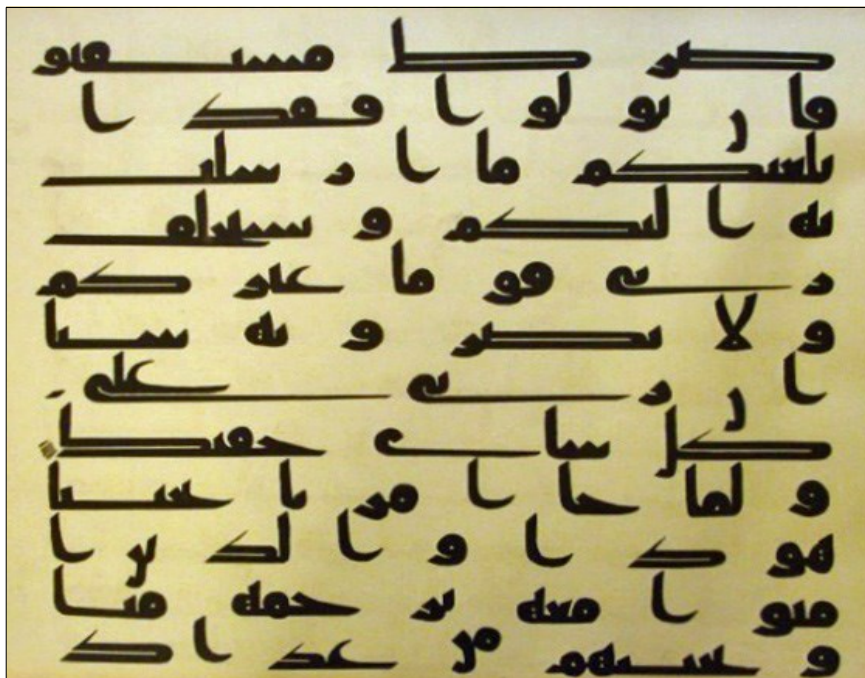 صرط مستقيم
فان تولوا فقد ا
بلغتكم ما ارسلت
به اليكم ويستخلف
ربي قوما غيركم
ولا تضرونه شيا
ان ربي على
كل شاي حفيظ
ولما جا امرنا نجينا
هودا والذين ا
منوا معه برحمة منا
ونجينهم من عذاب